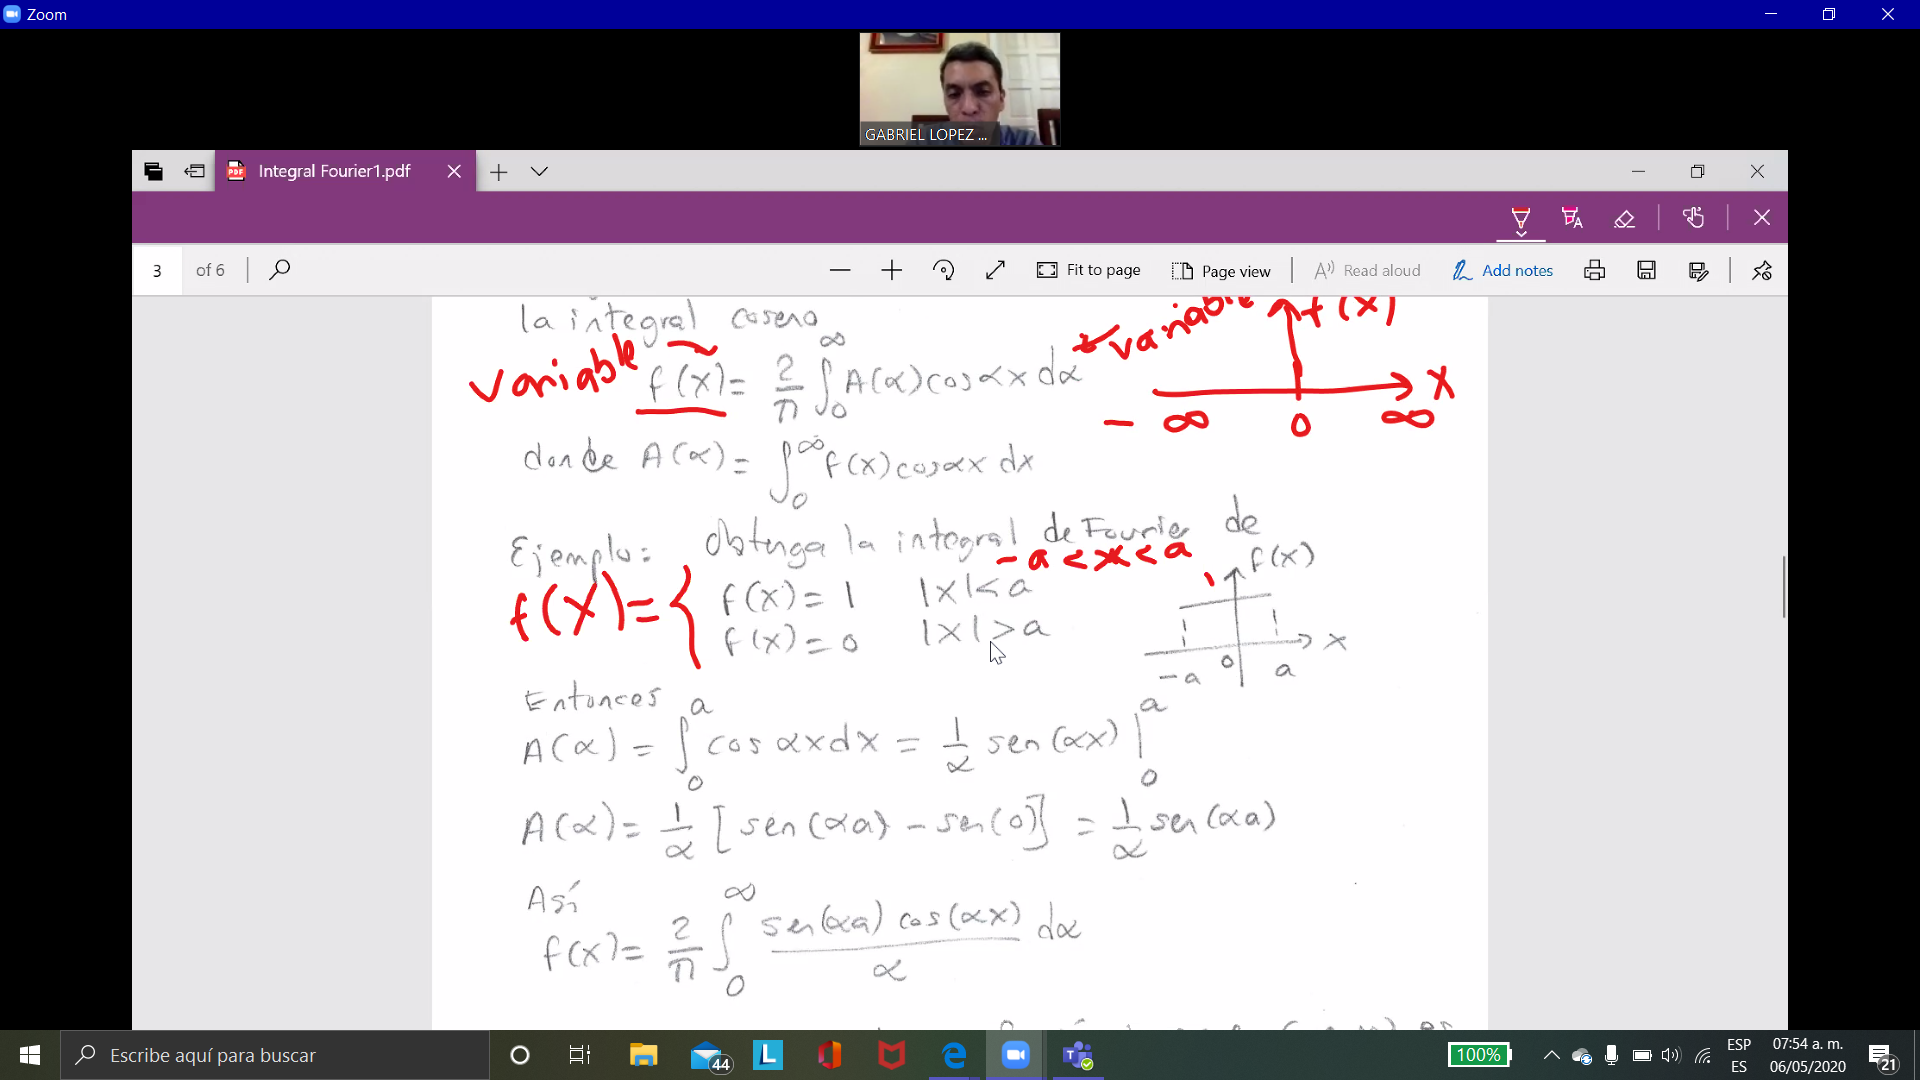 Zoom
GABRIEL LOPEZ ...
Integral Fourier1.pdf
3 of 6
Fit to page
Page view
Read aloud
Add notes
la integral coseno
variable
f(x) = 2/π ∫₀^∞ A(α) cos αx dα
variable
f(x)
x
- ∞ 0 ∞
donde A(α) = ∫₀^∞ f(x) cos αx dx
Ejemplo: Obtenga la integral de Fourier de
- a < x < a
f(x) = {
f(x) = 1 |x| < a
f(x) = 0 |x| > a
f(x)
x
- a 0 a
Entonces
A(α) = ∫₀^a cos αx dx = 1/α sen(αx) |₀^a
A(α) = 1/α [sen(αa) - sen(0)] = 1/α sen(αa)
Así
f(x) = 2/π ∫₀^∞ sen(αa) cos(αx) / α dα
Escribe aquí para buscar
44
L
100%
ESP
ES
07:54 a. m.
06/05/2020
21